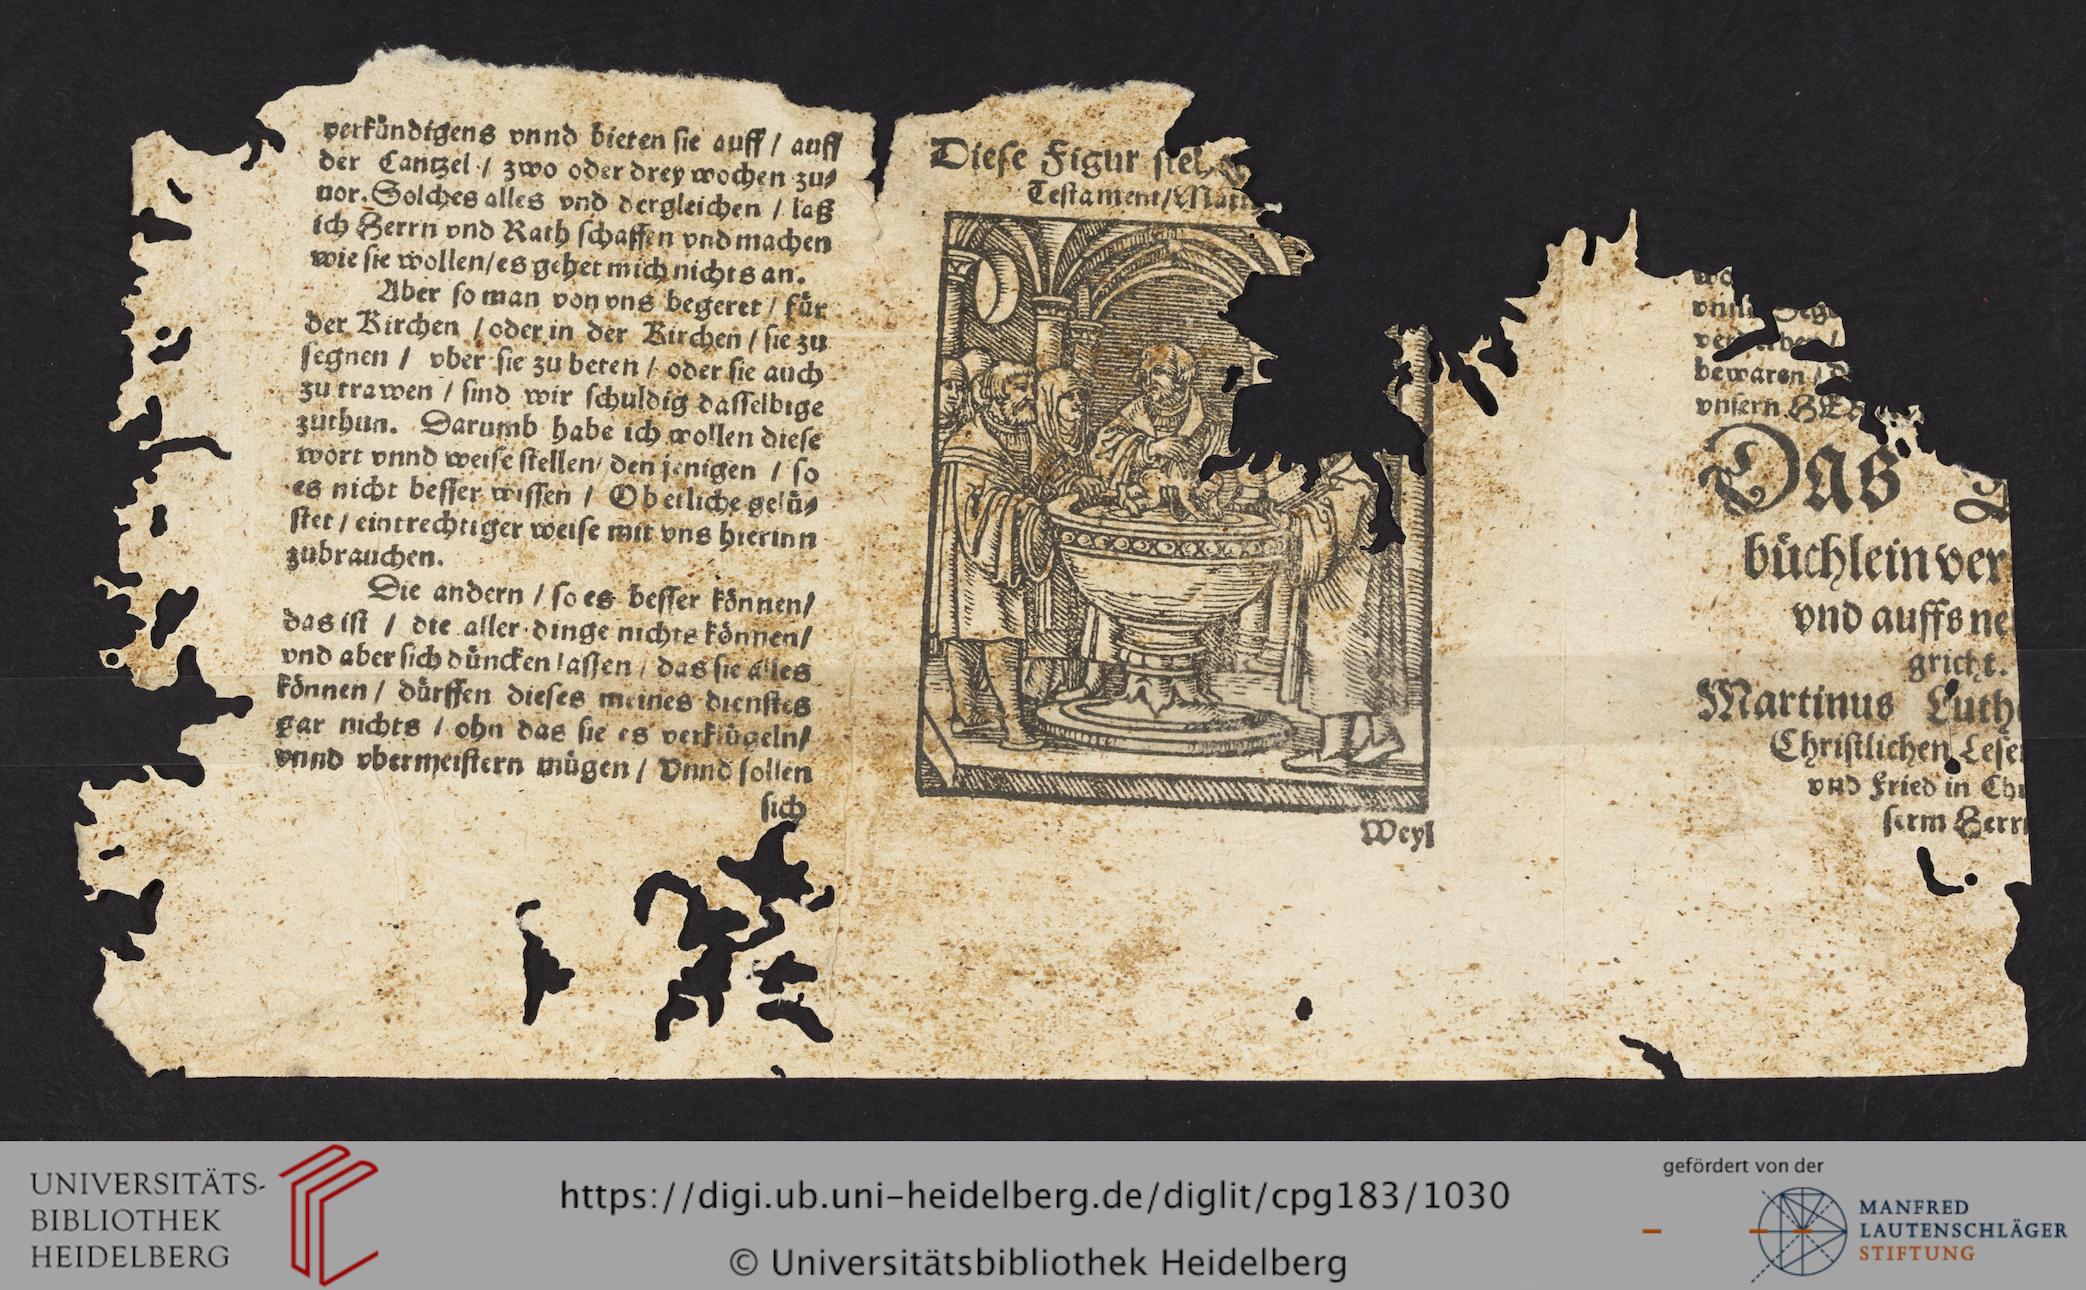 verkündigens vnnd bieten sie auff / auff
der Cantzel / zwo oder drey wochen zu⸗
uor. Solches alles vnd dergleichen / laß
ich Herrn vnd Rath schaffen vnd machen
wie sie wollen/ es gehet mich nichts an.
Aber so man von vns begeret / für
der Kirchen / oder in der Kirchen / sie zu
segnen / vber sie zu beten / oder sie auch
zu trawen / sind wir schuldig dasselbige
zuthun. Darumb habe ich wollen diese
wort vnnd weise stellen/ den jenigen / so
es nicht besser wissen / Ob etliche gelü⸗
stet / eintrechtiger weise mit vns hierinn
zubrauchen.
Die andern / so es besser können/
das ist / die aller dinge nichts können/
vnd aber sich düncken lassen / das sie alles
können / dürffen dieses meines dienstes
gar nichts / ohn das sie es verklügeln/
vnnd vbermeistern mügen / Vnnd sollen
sich
Diese Figur
Testament/
Weyl
bewaren /
vnsern
DAS
büchlein ver
vnd auffs ne
gricht.
Martinus Luth
Christlichen Lese
vnd Fried in Ch
serm Herr
UNIVERSITÄTS-
BIBLIOTHEK
HEIDELBERG
https://digi.ub.uni-heidelberg.de/diglit/cpg183/1030
© Universitätsbibliothek Heidelberg
gefördert von der
MANFRED
LAUTENSCHLÄGER
STIFTUNG